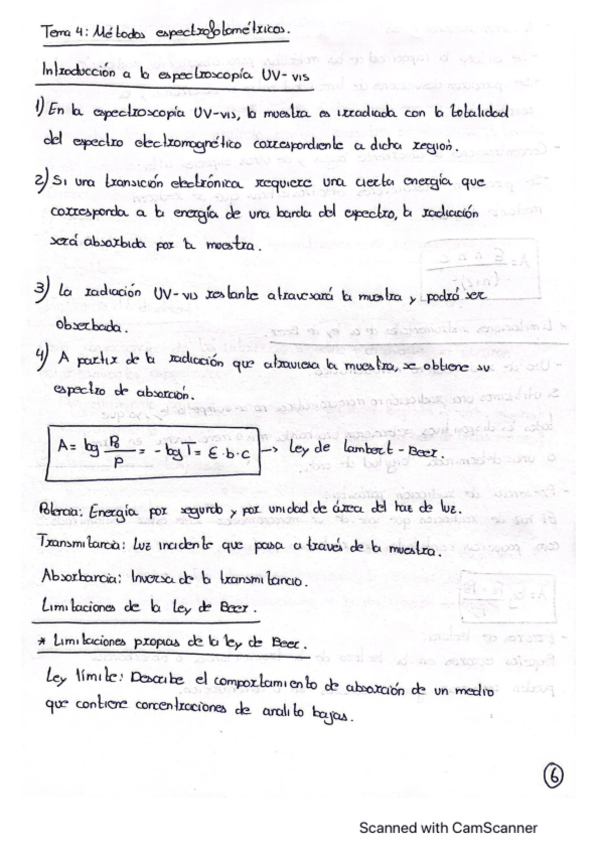 Tema 4: Métodos espectrofotométricos.
Introducción a la espectroscopía UV-vis
1) En la espectroscopía UV-vis, la muestra es irradiada con la totalidad
del espectro electromagnético correspondiente a dicha región.
2) Si una transición electrónica requiere una cierta energía que
corresponda a la energía de una banda del espectro, la radiación
será absorbida por la muestra.
3) La radiación UV-vis restante atravesará la muestra y podrá ser
obserbada.
4) A partir de la radiación que atraviesa la muestra, se obtiene su
espectro de absorción.
A = log P₀/P = - log T = ε·b·c → Ley de Lambert-Beer.
Potencia: Energía por segundo y por unidad de área del haz de luz.
Transmitancia: Luz incidente que pasa a través de la muestra.
Absorbancia: Inversa de la transmitancia.
Limitaciones de la Ley de Beer.
* Limitaciones propias de la ley de Beer.
Ley límite: Describe el comportamiento de absorción de un medio
que contiene concentraciones de analito bajas.
6
Scanned with CamScanner